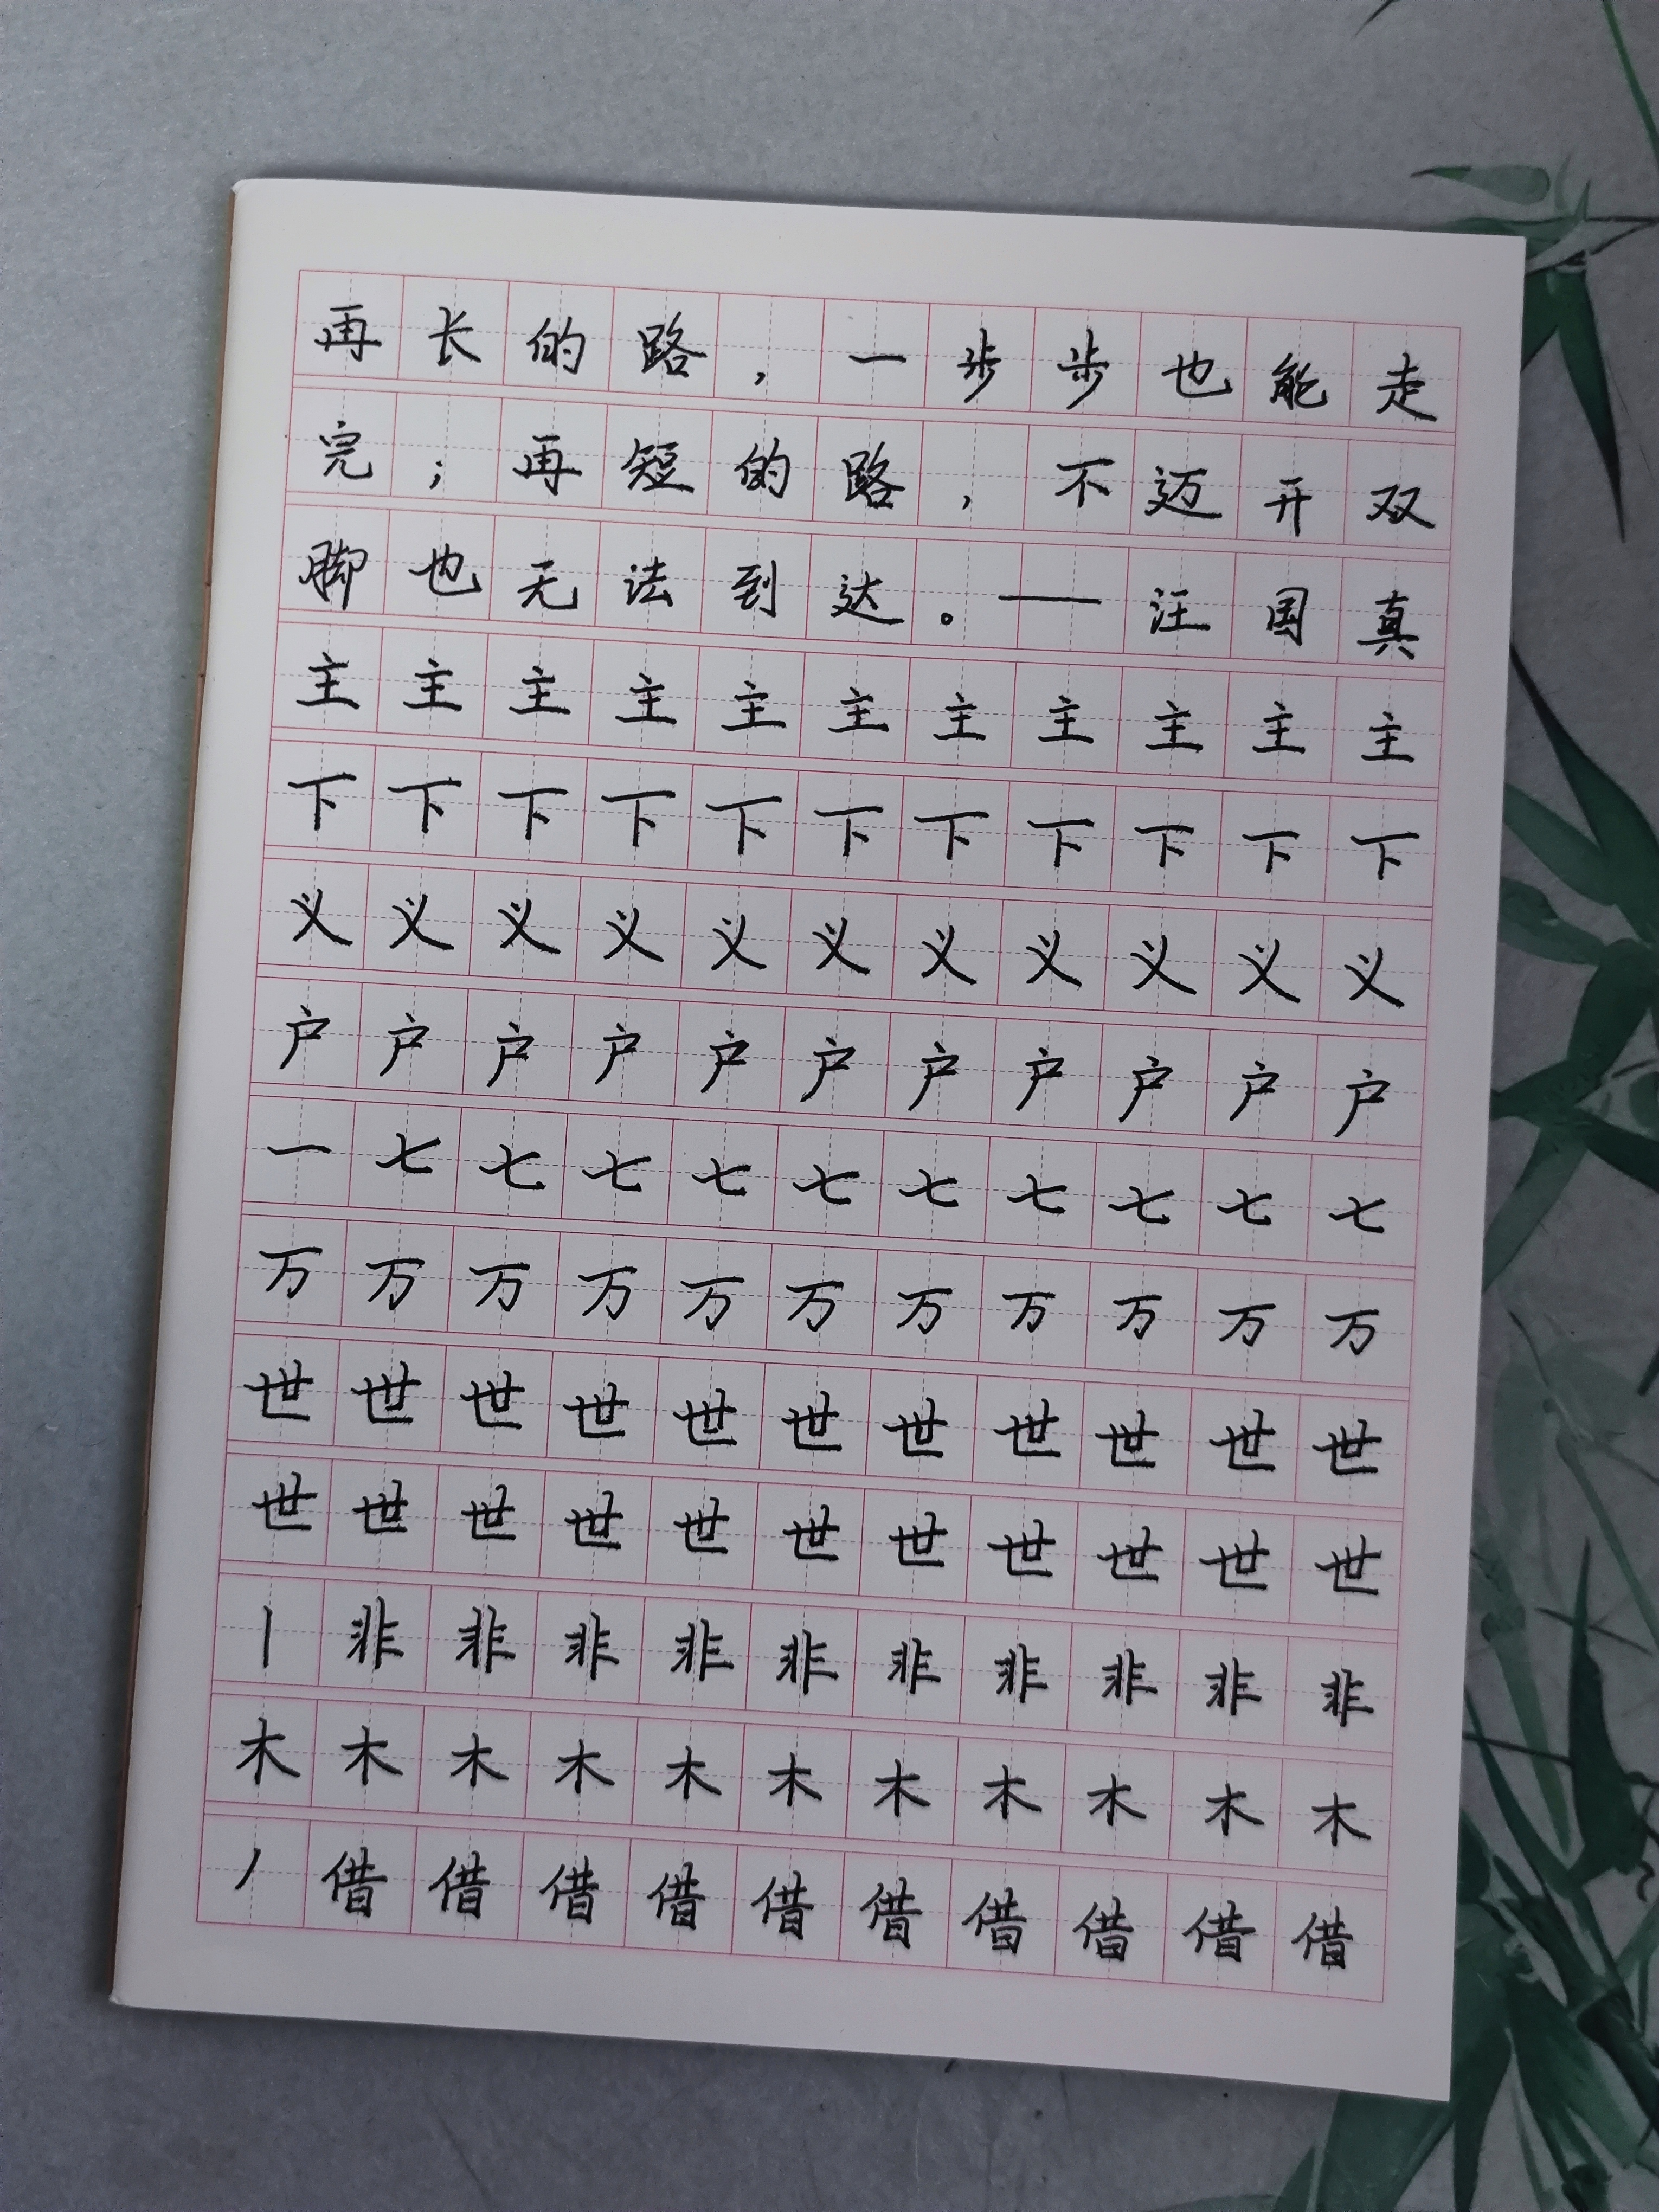 再长的路，一步步也能走
完；再短的路，不迈开双
脚也无法到达。——汪国真
主主主主主主主主主主主
下下下下下下下下下下下
义义义义义义义义义义义
户户户户户户户户户户户
一七七七七七七七七七七
万万万万万万万万万万万
世世世世世世世世世世世
世世世世世世世世世世世
丨非非非非非非非非非非
木木木木木木木木木木木
丿借借借借借借借借借借